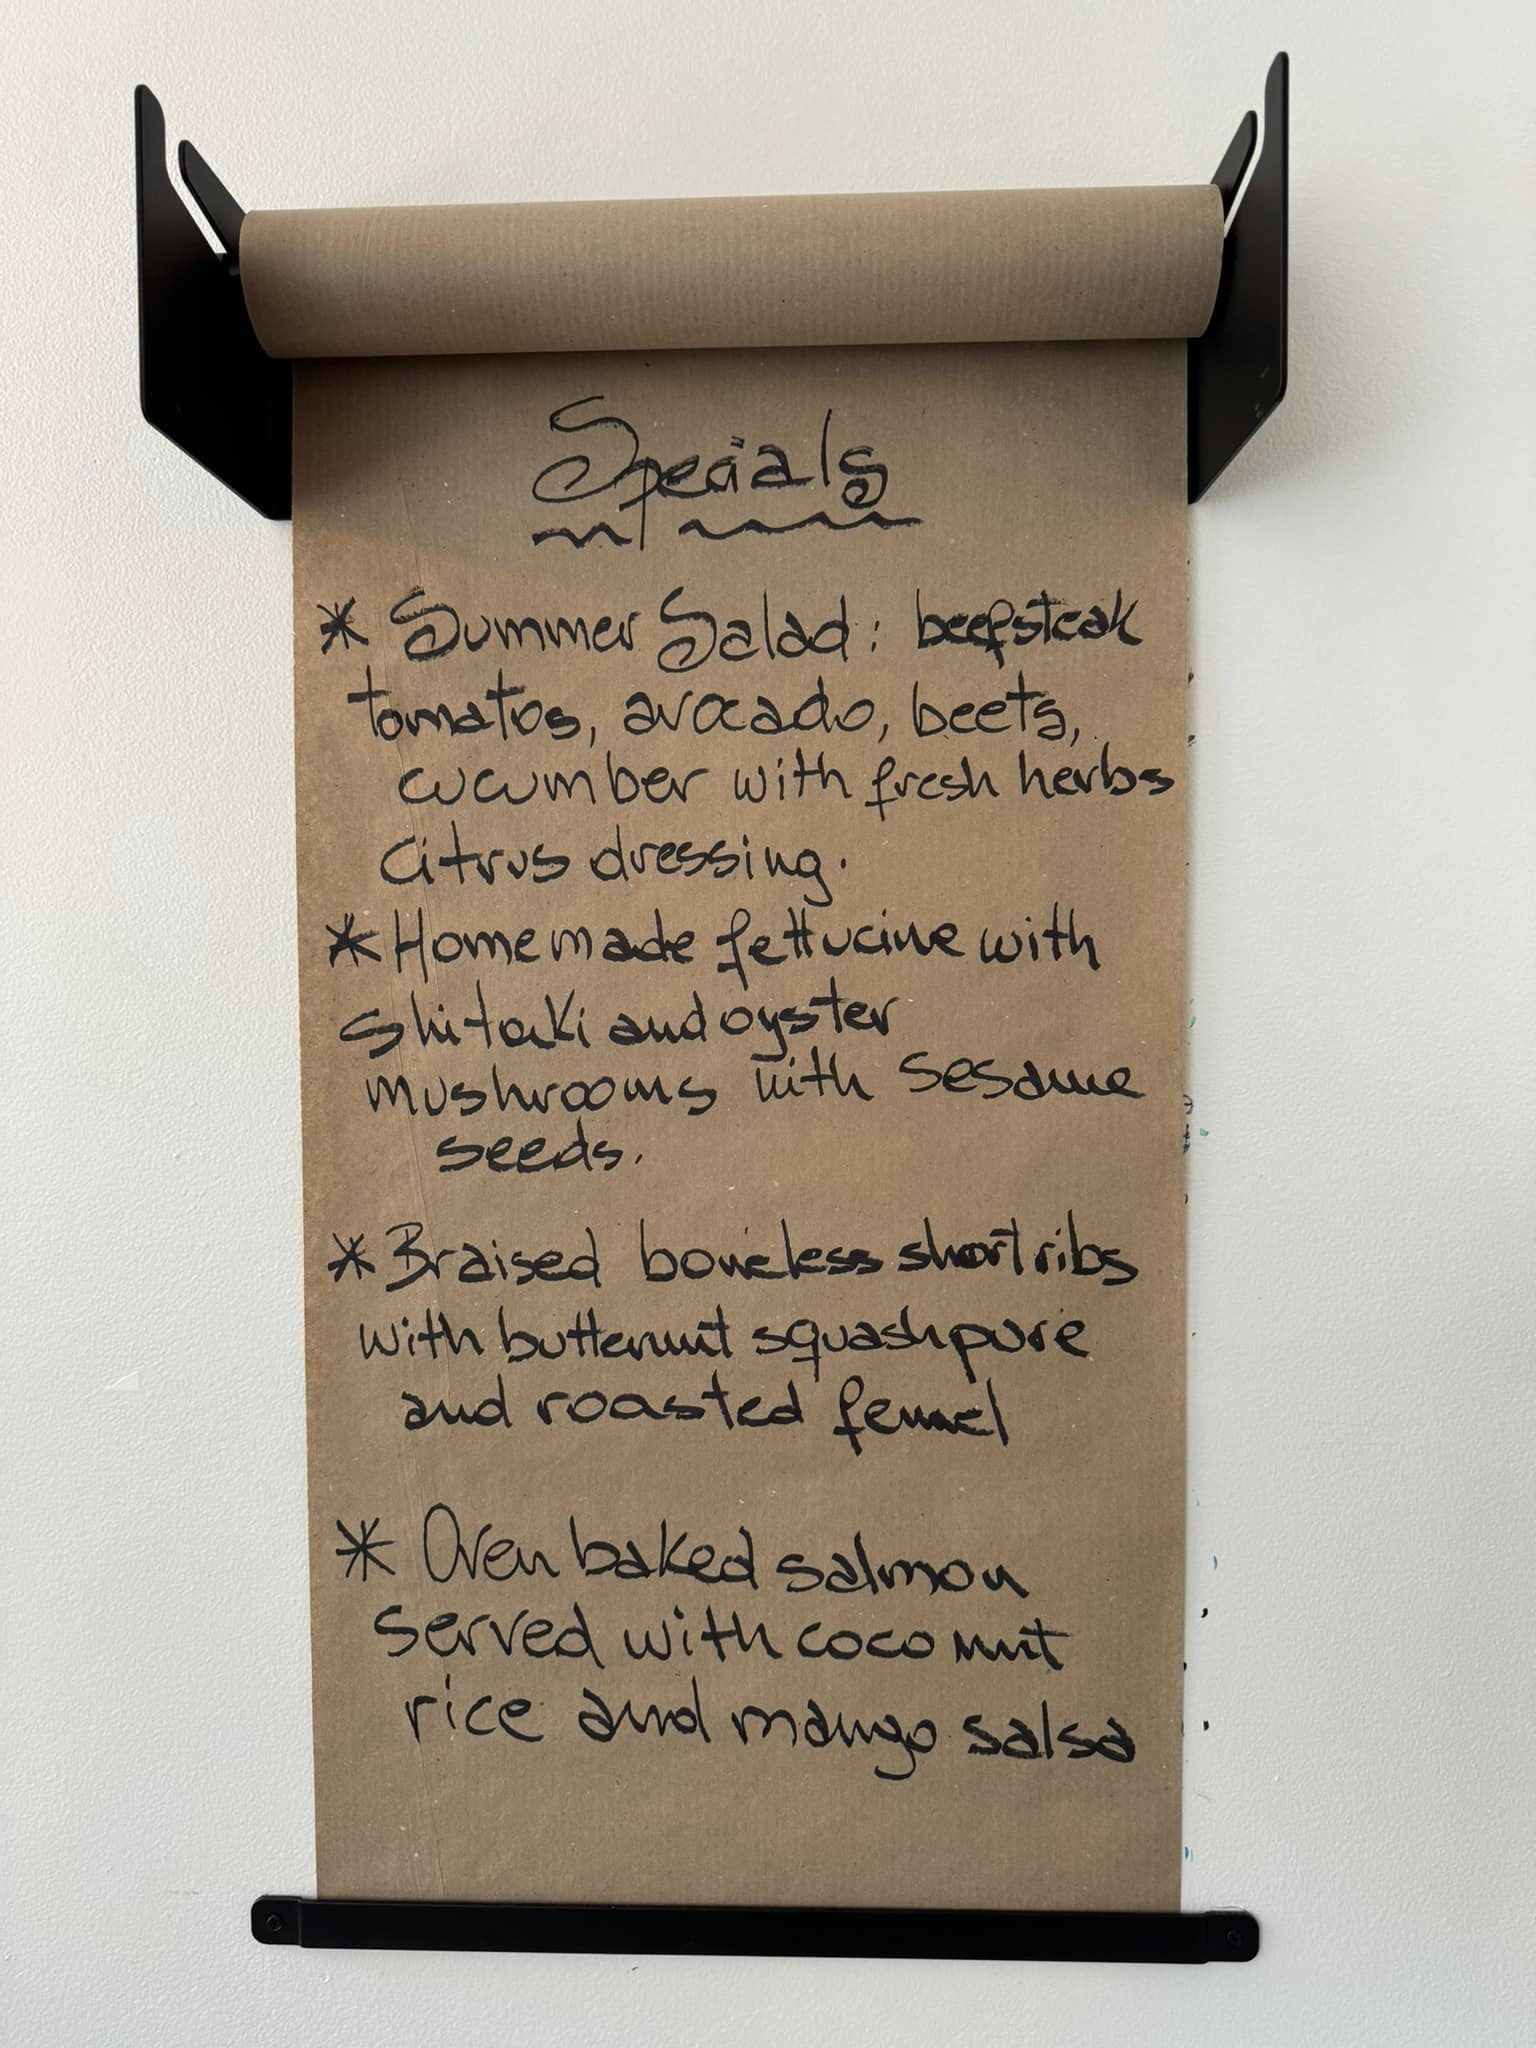 Specials
* Summer Salad: beefsteak
tomatos, avocado, beets,
cucumber with fresh herbs
citrus dressing.
* Homemade fettucine with
shitaki and oyster
mushrooms with sesame
seeds.
* Braised boneless short ribs
with butternut squash pure
and roasted fennel
* Oven baked salmon
served with coconut
rice and mango salsa